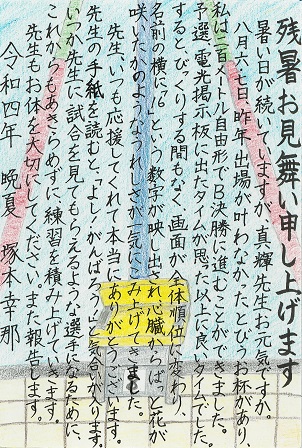 残暑お見舞い申し上げます
暑い日が続いていますが、真輝先生お元気ですか。
八月六・七日、昨年、出場が叶わなかった、とびうお杯があり、
私は二百メートル自由形でB決勝に進むことができました。
予選、電光掲示板に出たタイムが思った以上に良いタイムでした。
するとびっくりする間もなく、画面が全体順位に変わり、
名前の横に「16」という数字が映し出され心臓からぱっと花が
咲いたかのようなうれしさが一気にこみ上げてきました。
先生、いつも応援してくれて本当にありがとうございます。
先生の手紙を読むと、「よし、がんばろう」と気合が入ります。
いつか先生に試合を見てもらえるような選手になるために、
これからもあきらめずに、練習を積み上げていきます。
先生もお体を大切にしてください。また報告します。
令和四年 晩夏 塚本幸那